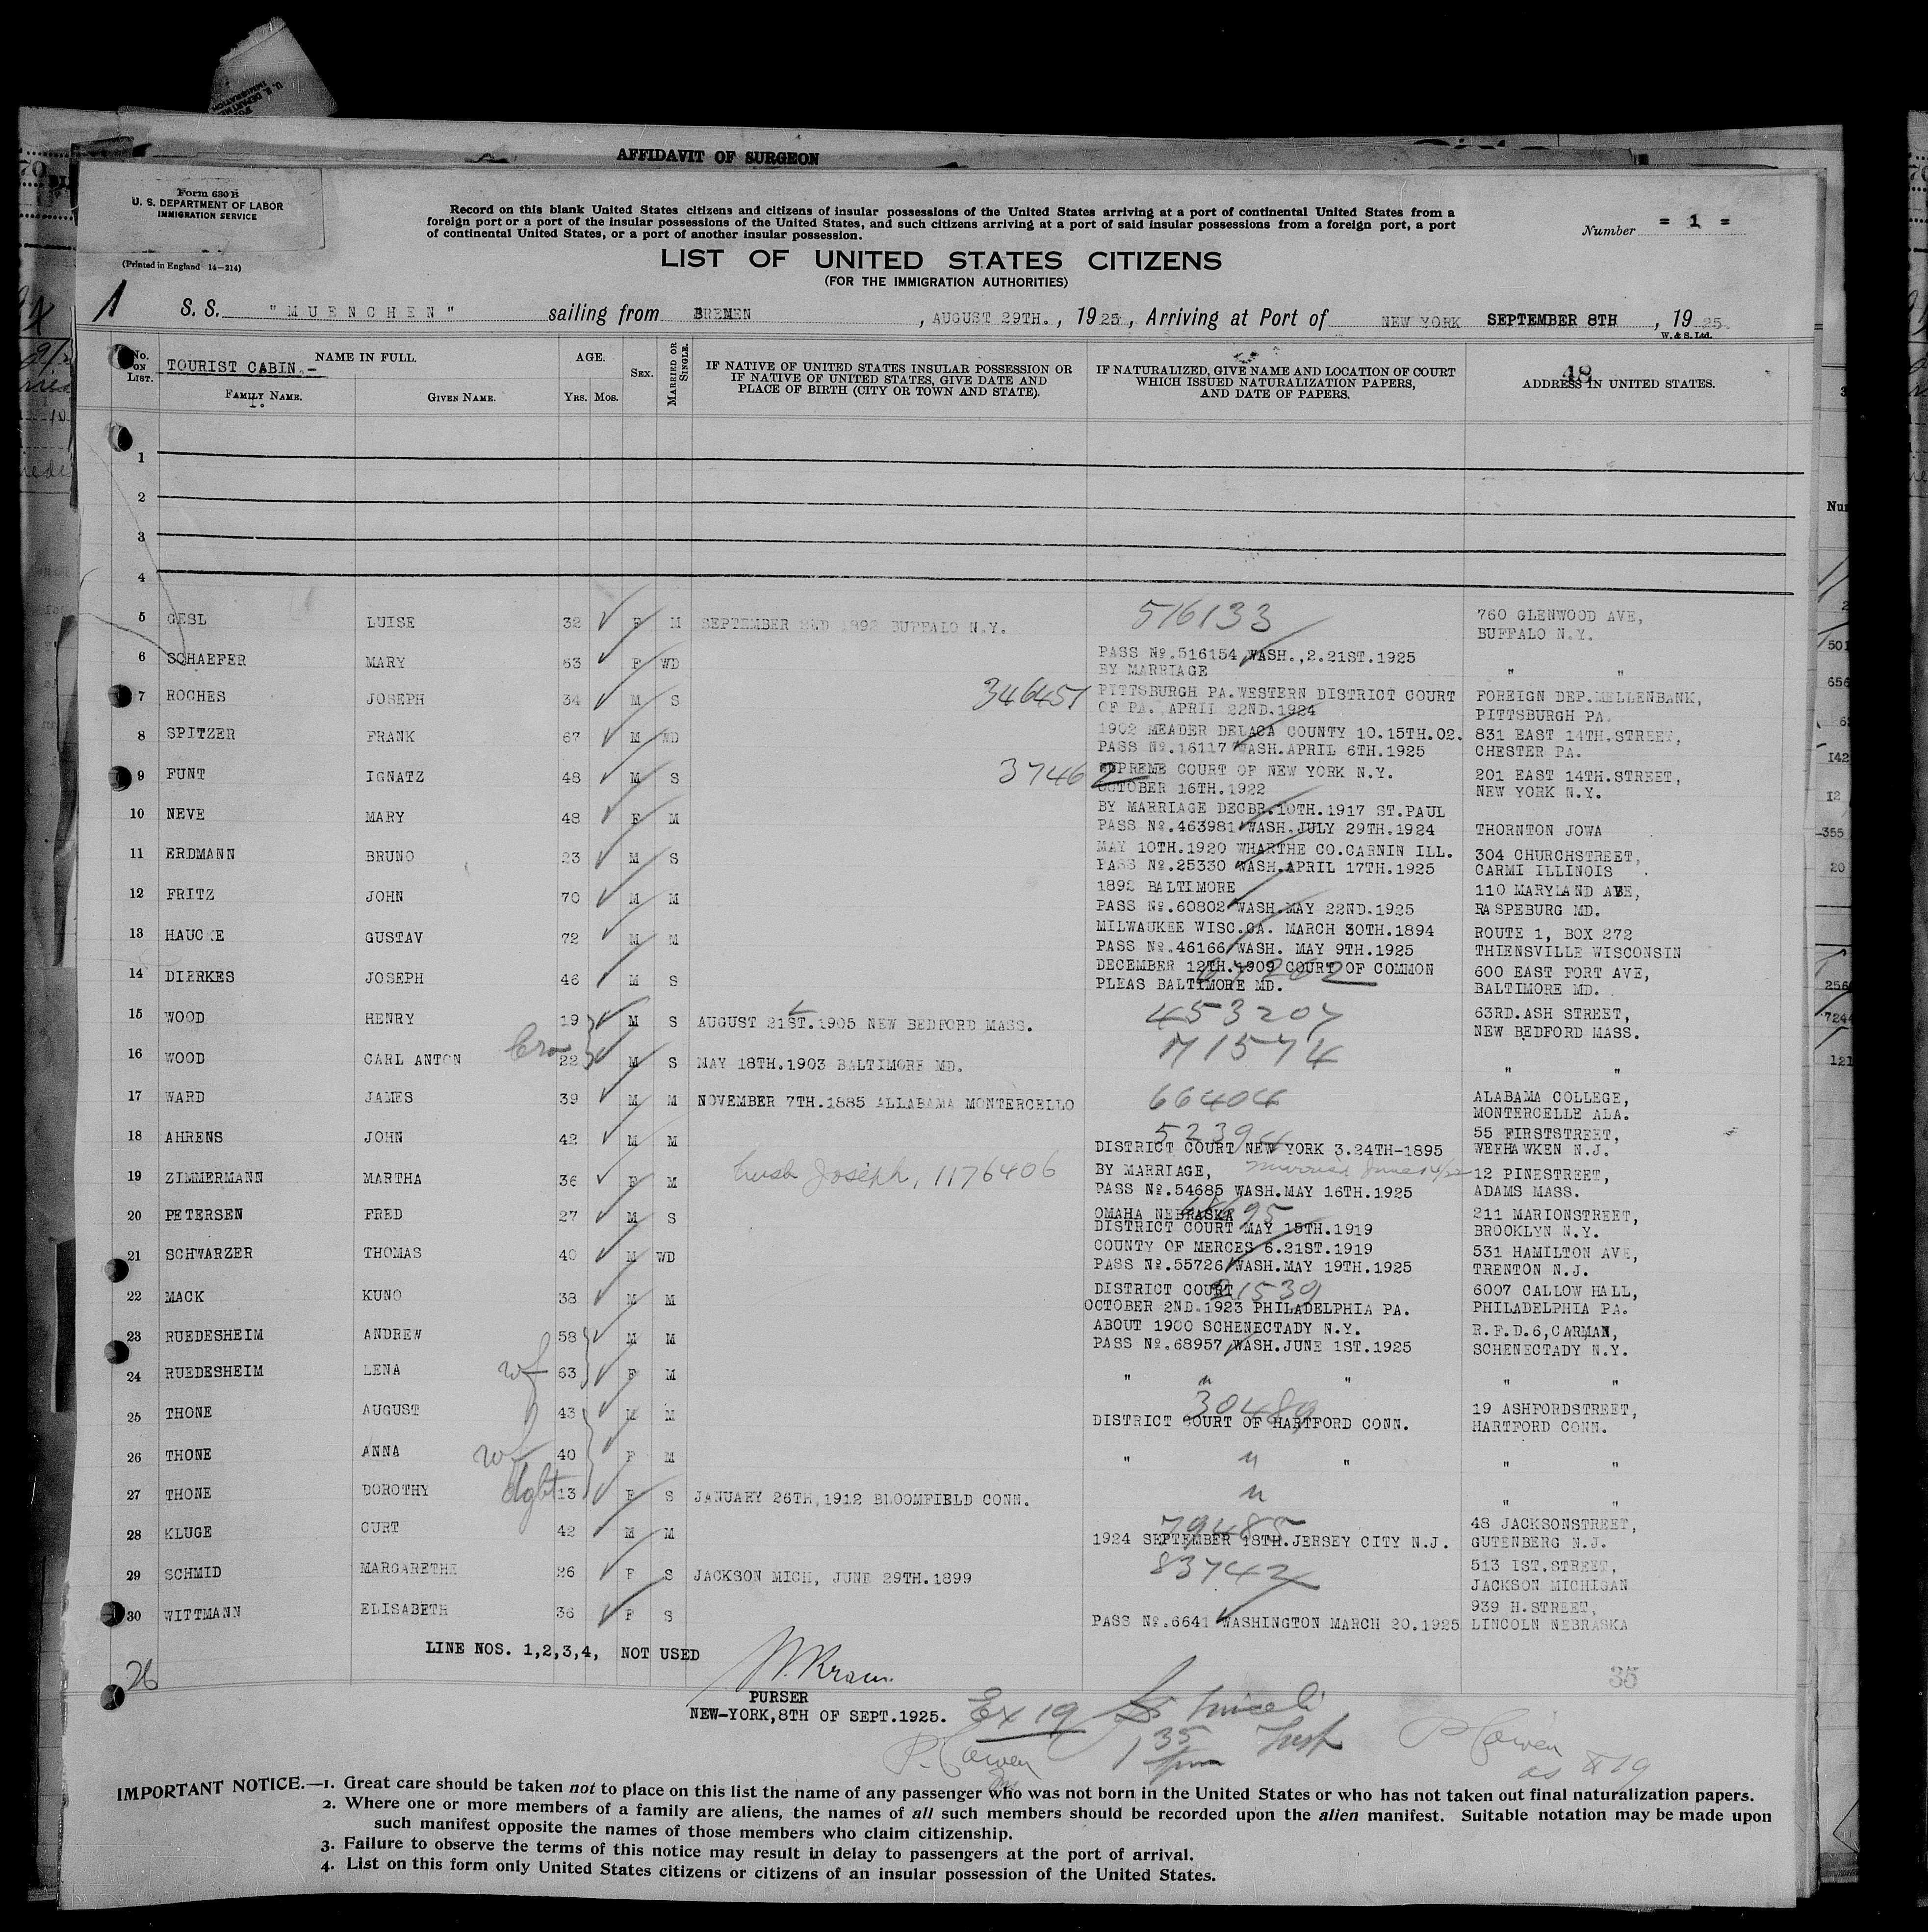 U. S. DEPARTMENT
IMMIGRATION
AFFIDAVIT OF SURGEON
Form 630 B
U. S. DEPARTMENT OF LABOR
IMMIGRATION SERVICE
(Printed in England 14—214)
Record on this blank United States citizens and citizens of insular possessions of the United States arriving at a port of continental United States from a
foreign port or a port of the insular possessions of the United States, and such citizens arriving at a port of said insular possessions from a foreign port, a port
of continental United States, or a port of another insular possession.
Number = 1 =
LIST OF UNITED STATES CITIZENS
(FOR THE IMMIGRATION AUTHORITIES)
S. S. "MUENCHEN" sailing from BREMEN, AUGUST 29TH., 1925, Arriving at Port of NEW YORK SEPTEMBER 8TH, 1925.
W. & S. Ltd.
No. ON LIST. NAME IN FULL. AGE. SEX. MARRIED OR SINGLE. IF NATIVE OF UNITED STATES INSULAR POSSESSION OR IF NATIVE OF UNITED STATES, GIVE DATE AND PLACE OF BIRTH (CITY OR TOWN AND STATE). IF NATURALIZED, GIVE NAME AND LOCATION OF COURT WHICH ISSUED NATURALIZATION PAPERS, AND DATE OF PAPERS. 48 ADDRESS IN UNITED STATES.
TOURIST CABIN.-
FAMILY NAME. GIVEN NAME. YRS. MOS.
1
2
3
4
5 GESL LUISE 32 F M SEPTEMBER 2ND 1892 BUFFALO N.Y. 516133 760 GLENWOOD AVE,
BUFFALO N.Y.
6 SCHAEFER MARY 63 F WD PASS No.516154 WASH.,2.21ST.1925
BY MARRIAGE " "
7 ROCHES JOSEPH 34 M S 346451 PITTSBURGH PA.WESTERN DISTRICT COURT FOREIGN DEP.MELLENBANK,
OF PA. APRIL 22ND.1924 PITTSBURGH PA.
8 SPITZER FRANK 67 M WD 1902 MEADER DELACA COUNTY 10.15TH.02. 831 EAST 14TH.STREET,
PASS No.16117 WASH.APRIL 6TH.1925 CHESTER PA.
9 FUNT IGNATZ 48 M S 37462 SUPREME COURT OF NEW YORK N.Y. 201 EAST 14TH.STREET,
OCTOBER 16TH.1922 NEW YORK N.Y.
10 NEVE MARY 48 F M BY MARRIAGE DECBR.10TH.1917 ST.PAUL
PASS No.463981 WASH.JULY 29TH.1924 THORNTON JOWA
11 ERDMANN BRUNO 23 M S MAY 10TH.1920 WHARTHE CO.CARNIN ILL. 304 CHURCHSTREET,
PASS No.25330 WASH.APRIL 17TH.1925 CARMI ILLINOIS
12 FRITZ JOHN 70 M M 1892 BALTIMORE 110 MARYLAND AVE,
PASS No.60802 WASH.MAY 22ND.1925 RASPEBURG MD.
13 HAUCKE GUSTAV 72 M M MILWAUKEE WISC.CA. MARCH 30TH.1894 ROUTE 1, BOX 272
PASS No.46166 WASH. MAY 9TH.1925 THIENSVILLE WISCONSIN
14 DIERKES JOSEPH 46 M S DECEMBER 12TH.1909 COURT OF COMMON 600 EAST FORT AVE,
PLEAS BALTIMORE MD. BALTIMORE MD.
15 WOOD HENRY 19 M S AUGUST 21ST.1905 NEW BEDFORD MASS. 453207 63RD.ASH STREET,
NEW BEDFORD MASS.
16 WOOD CARL ANTON bro 22 M S MAY 18TH.1903 BALTIMORE MD. 71574 " "
17 WARD JAMES 39 M M NOVEMBER 7TH.1885 ALLABAMA MONTERCELLO 66404 ALABAMA COLLEGE,
MONTERCELLE ALA.
18 AHRENS JOHN 42 M M 52394 55 FIRSTSTREET,
DISTRICT COURT NEW YORK 3.24TH-1895 WEEHAWKEN N.J.
19 ZIMMERMANN MARTHA 36 F M husb Joseph, 1176406 BY MARRIAGE, 12 PINESTREET,
PASS No.54685 WASH.MAY 16TH.1925 ADAMS MASS.
20 PETERSEN FRED 27 M S OMAHA NEBRASKA 211 MARIONSTREET,
DISTRICT COURT MAY 15TH.1919 BROOKLYN N.Y.
21 SCHWARZER THOMAS 40 M WD COUNTY OF MERCES 6.21ST.1919 531 HAMILTON AVE,
PASS No.55726 WASH.MAY 19TH.1925 TRENTON N.J.
22 MACK KUNO 38 M M DISTRICT COURT 21539 6007 CALLOW HALL,
OCTOBER 2ND.1923 PHILADELPHIA PA. PHILADELPHIA PA.
23 RUEDESHEIM ANDREW 58 M M ABOUT 1900 SCHENECTADY N.Y. R.F.D.6,CARMAN,
PASS No.68957 WASH.JUNE 1ST.1925 SCHENECTADY N.Y.
24 RUEDESHEIM LENA wf 63 F M " " " " "
25 THONE AUGUST 43 M M 30489 19 ASHFORDSTREET,
DISTRICT COURT OF HARTFORD CONN. HARTFORD CONN.
26 THONE ANNA wf 40 F M " " " " "
27 THONE DOROTHY dght 13 F S JANUARY 26TH,1912 BLOOMFIELD CONN. " " "
28 KLUGE CURT 42 M M 79485 48 JACKSONSTREET,
1924 SEPTEMBER 18TH.JERSEY CITY N.J. GUTENBERG N.J.
29 SCHMID MARGARETHE 26 F S JACKSON MICH, JUNE 29TH.1899 83742 513 IST.STREET,
JACKSON MICHIGAN
30 WITTMANN ELISABETH 36 F S 939 H.STREET,
PASS No.6641 WASHINGTON MARCH 20.1925 LINCOLN NEBRASKA
LINE NOS. 1,2,3,4, NOT USED
26
35
PURSER
NEW-YORK,8TH OF SEPT.1925.
Ex 19
IMPORTANT NOTICE.—1. Great care should be taken not to place on this list the name of any passenger who was not born in the United States or who has not taken out final naturalization papers.
2. Where one or more members of a family are aliens, the names of all such members should be recorded upon the alien manifest. Suitable notation may be made upon
such manifest opposite the names of those members who claim citizenship.
3. Failure to observe the terms of this notice may result in delay to passengers at the port of arrival.
4. List on this form only United States citizens or citizens of an insular possession of the United States.